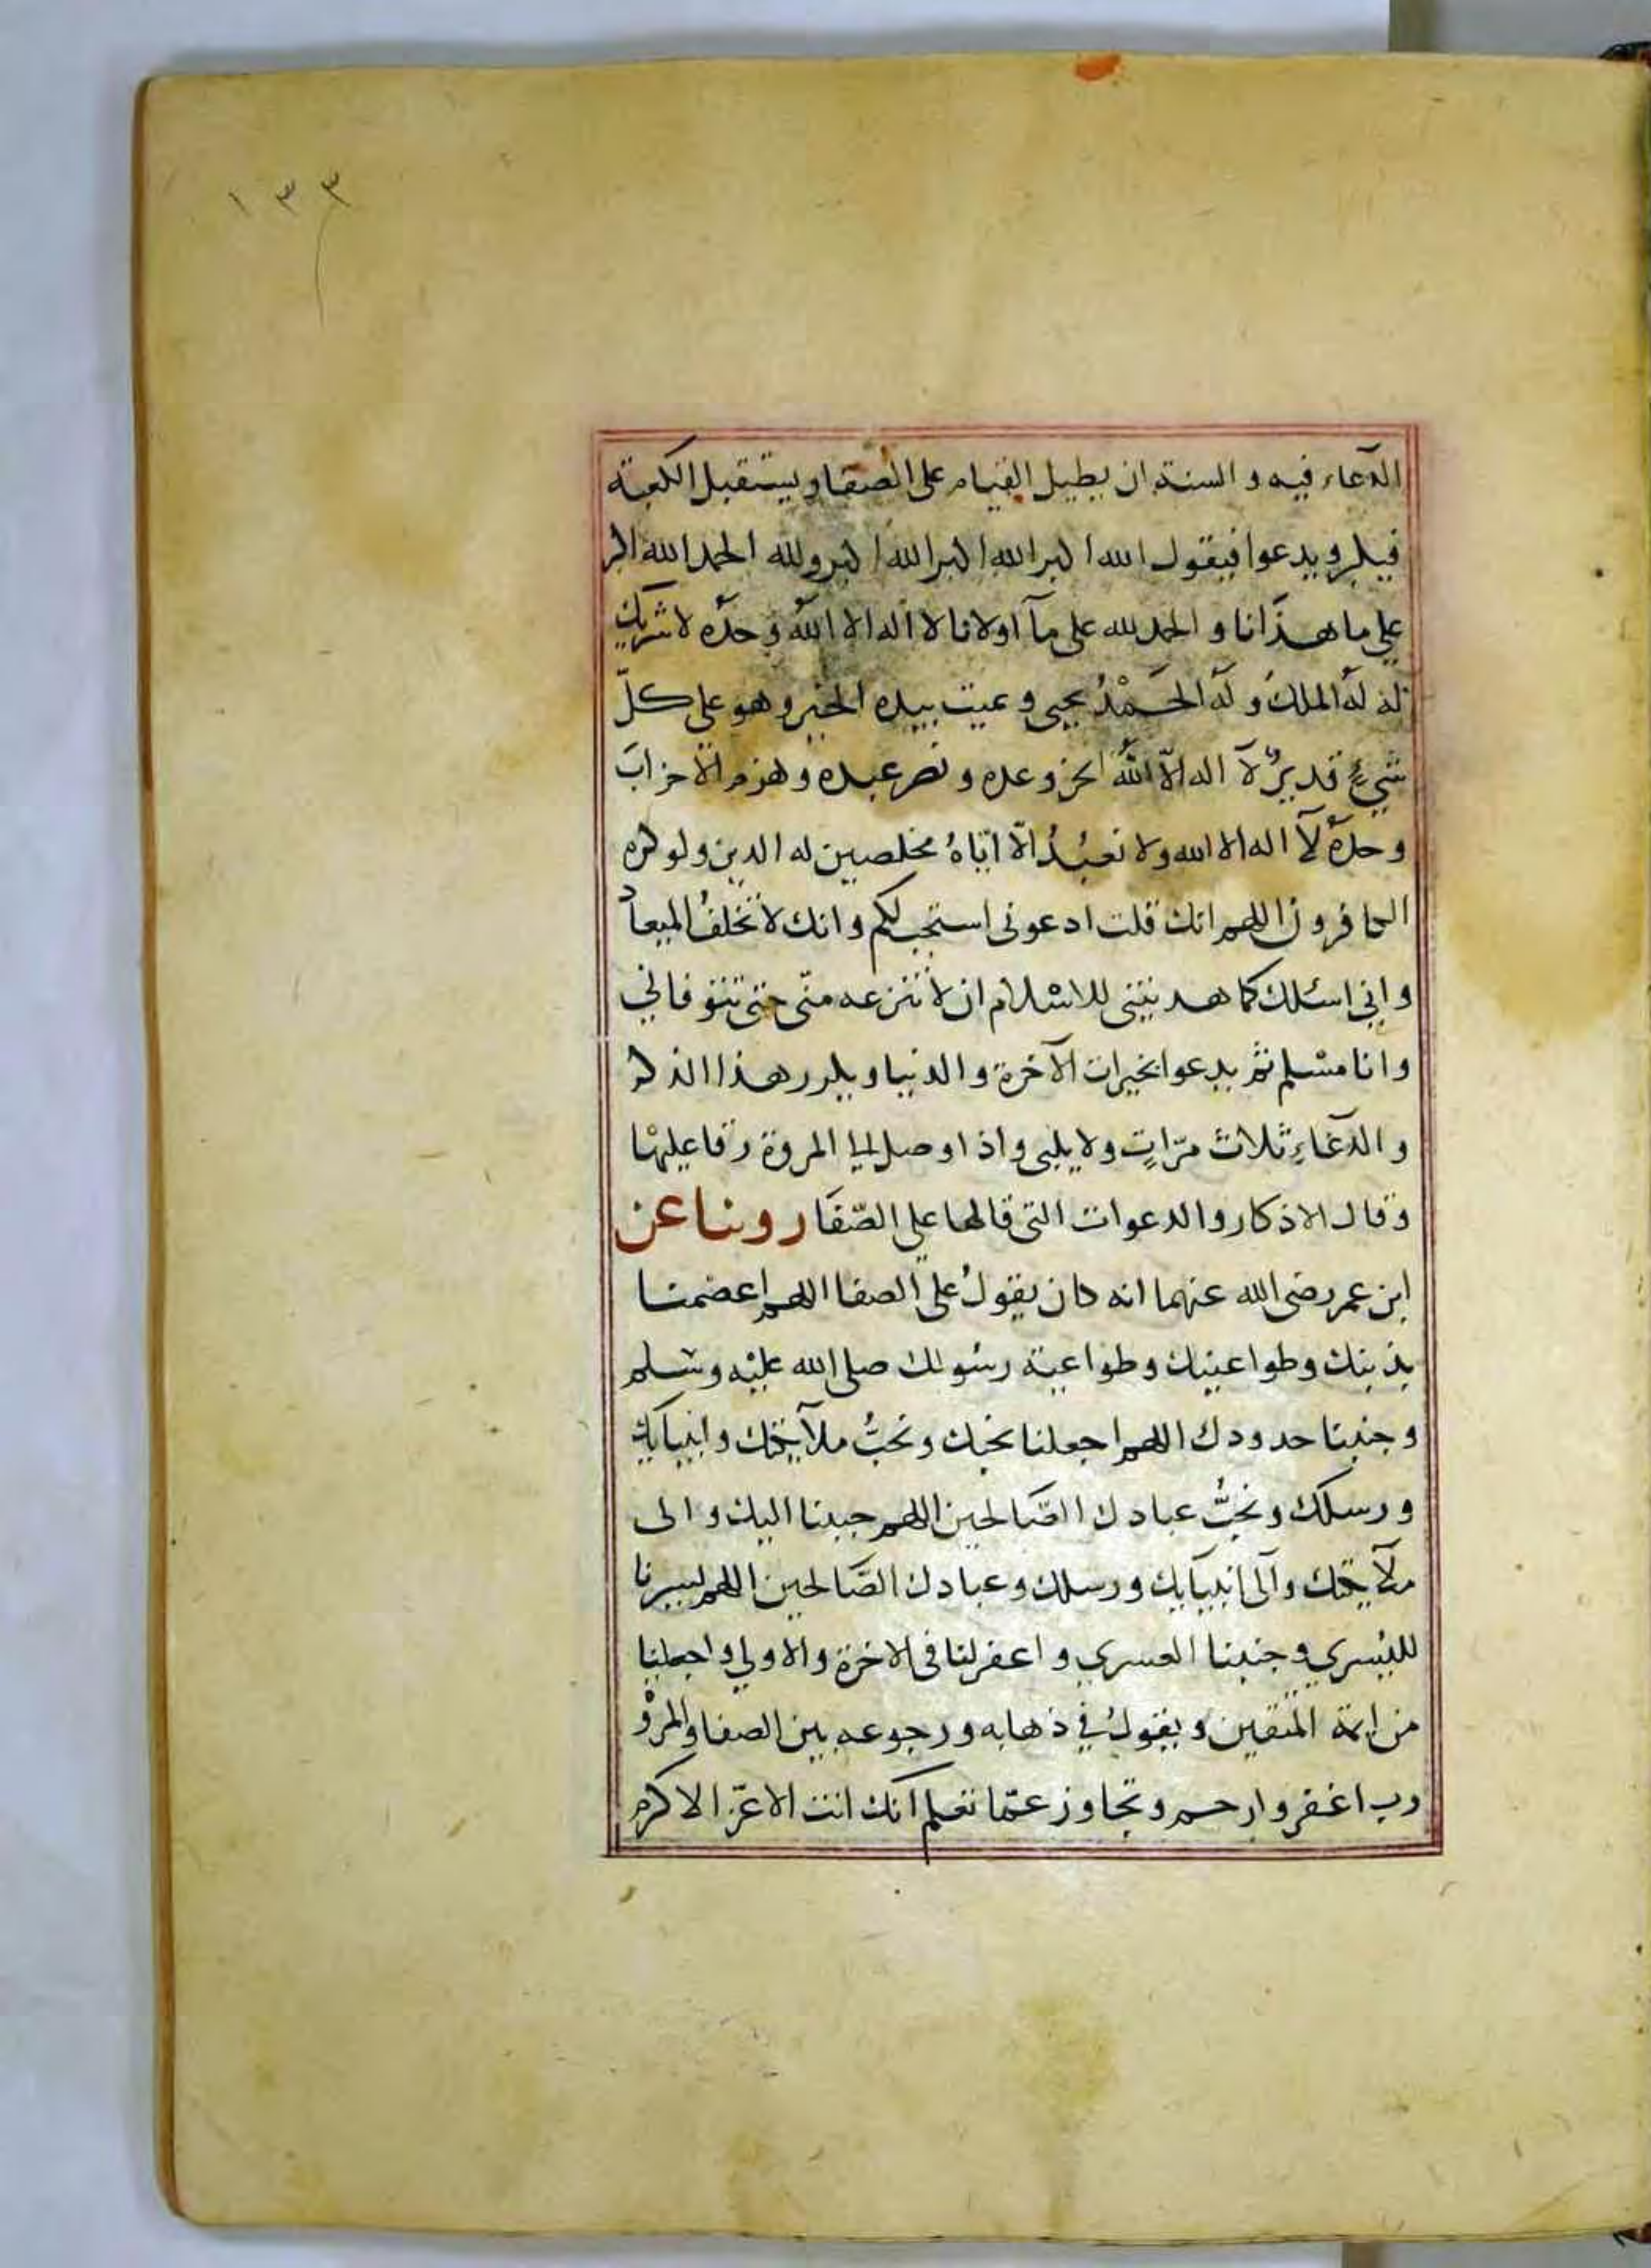 ١٣٣
الدعاء فيه والسنة ان يطيل القيام على الصفا ويستقبل الكعبة
فيكبر ويدعوا فيقول الله اكبر الله اكبر الله اكبر ولله الحمد الله اكبر
على ما هدانا والحمد لله على مآ اولانا لا اله الا الله وحده لا شريك
له له الملك وله الحمد يحيى ويميت بيده الخير وهو على كلّ
شيءٍ قديرٌ لآ اله الّا اللهُ انجز وعده ونصر عبده وهزم الاحزابَ
وحدهُ لآ اله الا الله ولا نعبُدُ الّا ايّاهُ مخلصين له الدين ولو كره
الكافرون اللهم انك قلت ادعونى استجب لكم وانك لا تخلفُ الميعاد
وانى اسئلك كما هديتنى للاسلام ان لا تنزعه منّى حتى تتوفانى
وانا مسلم ثم يدعوا بخيرات الآخرة والدنيا ويكرر هذا الذكر
والدعاءِ ثلاث مرّاتٍ ولا يلبى واذا وصل الى المروة رقا عليها
وقال الاذكار والدعوات التى قالها على الصّفَا روينا عن
ابن عمر رضى الله عنهما انه كان يقولُ على الصفا اللهم اعصمنا
بذينك وطواعيتك وطواعية رسولك صلى الله عليه وسلم
وجنبنا حدودك اللهم اجعلنا نحبك ونحبُّ ملآيكتك وانبيآيك
ورسلك ونحبُّ عبادك الصّالحين اللهم حببنا اليك والى
ملآيكتك وآلى انبيآيك ورسلك وعبادك الصَّالحين اللهم يسرنا
لليُسرى وجنبنا العسرى واغفر لنا فى الاخرة والاولى واجعلنا
من ايمة المتقين ويقولُ فى ذهابه ورجوعه بين الصفا والمروة
رب اغفر وارحم وتجاوز عمّا تعلم انك انت الاعزّ الاكرم